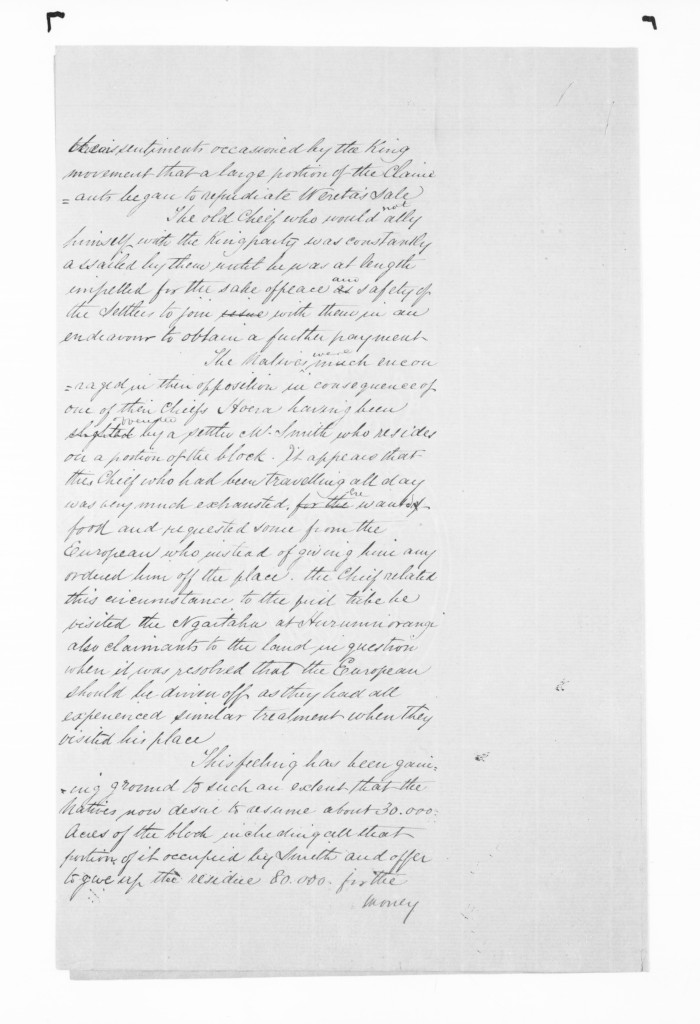 their sentiments occasioned by the King
movement that a large portion of the Claim
=ants began to repudiate Wereta's Sale
The old Chief who would not ally
himself with the King party was constantly
assailed by them until he was at length
impelled for the sake of peace and as safety of
the Settlers to join issue with them in an
endeavour to obtain a further payment.
The Natives were much encou
=raged in their opposition in consequence of
one of their Chiefs Hoera having been
slighted by a settler Mr. Smith who resides
on a portion of the block. It appears that
this Chief who had been travelling all day
was very much exhausted, for the want of
food and requested some from the
European who instead of giving him any
ordered him off the place. the Chief related
this circumstance to the first tribe he
visited the Ngaitaha at Hurunuiorangi
also claimants to the land in question
when it was resolved that the European
should be driven off as they had all
experienced similar treatment when they
visited his place
This feeling has been gain=
=ing ground to such an extent that the
Natives now desire to resume about 30.000.
Acres of the block including all that
portion of it occupied by Smith and offer
to give up the residue 80.000. for the
money